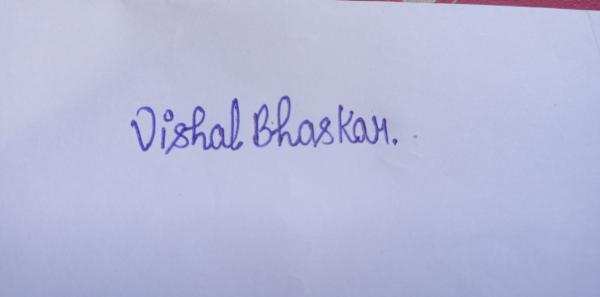 Vishal Bhaskar.